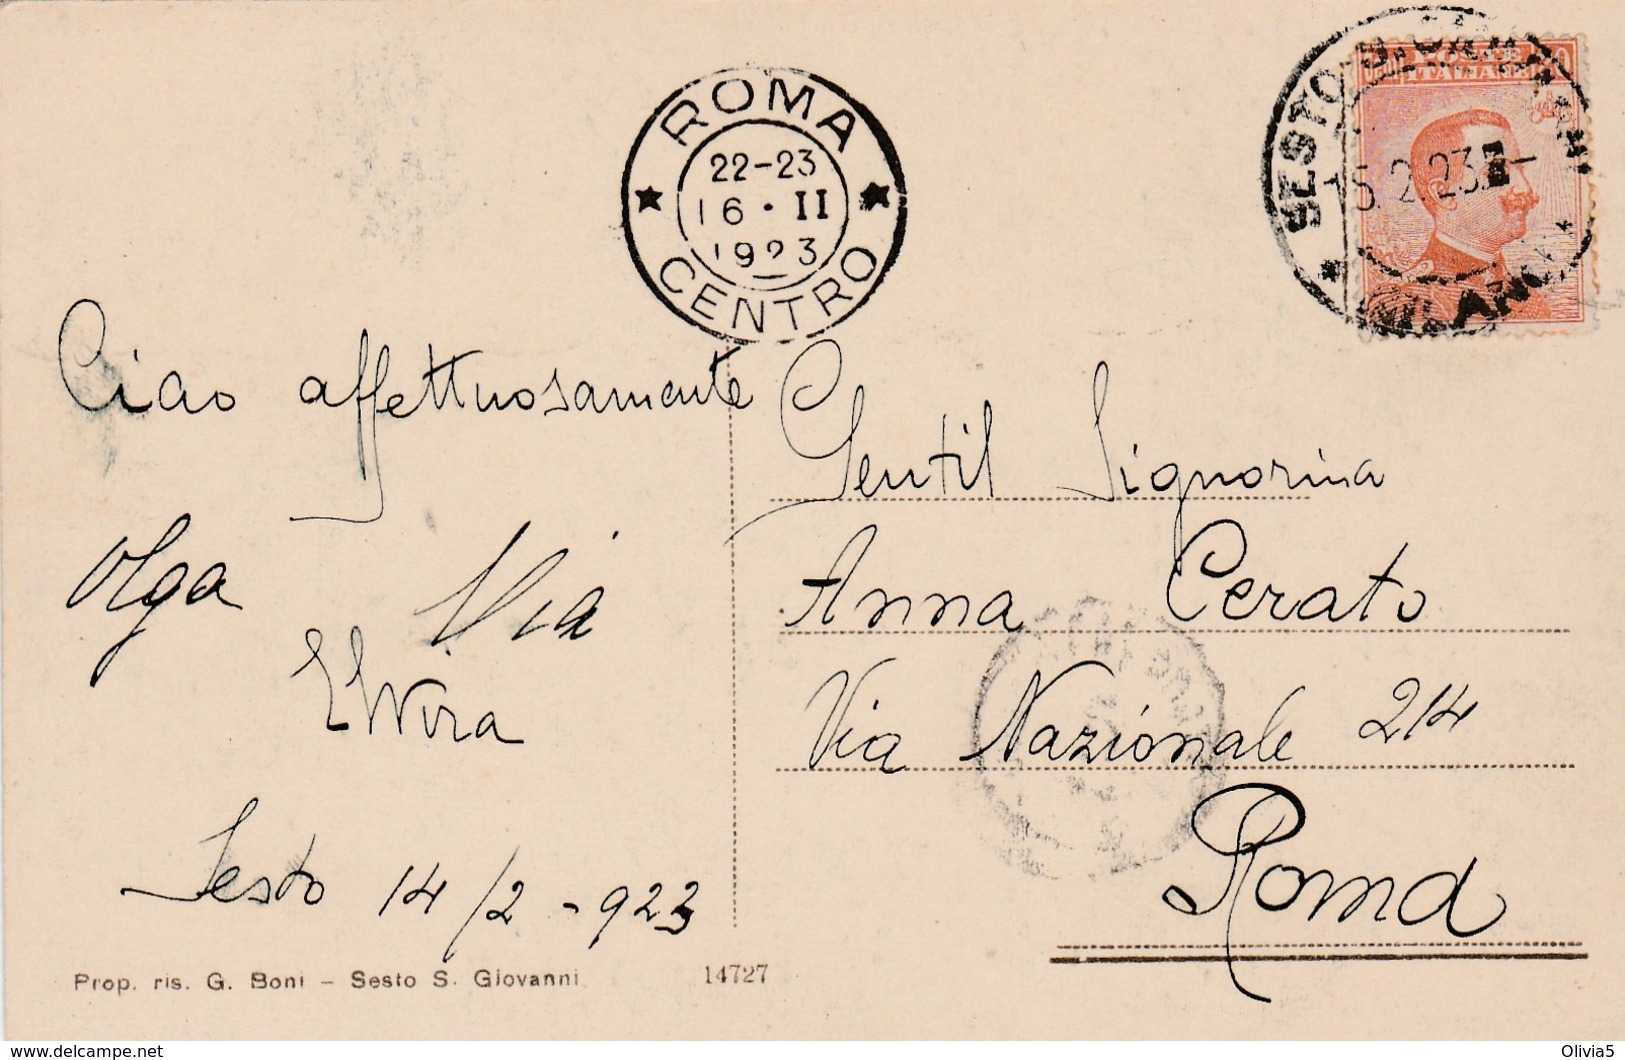 ROMA
22-23
16 · II
1923
CENTRO
SESTO S. GIOVANNI
15.2.23
MILANO
POSTE
ITALIANE
Ciao affettuosamente
Olga
Elvira
Sesto 14/2 - 923
Gentil Signorina
Anna Cerato
Via Nazionale 214
Roma
Prop. ris. G. Boni – Sesto S. Giovanni
14727
delcampe.net
Olivia5